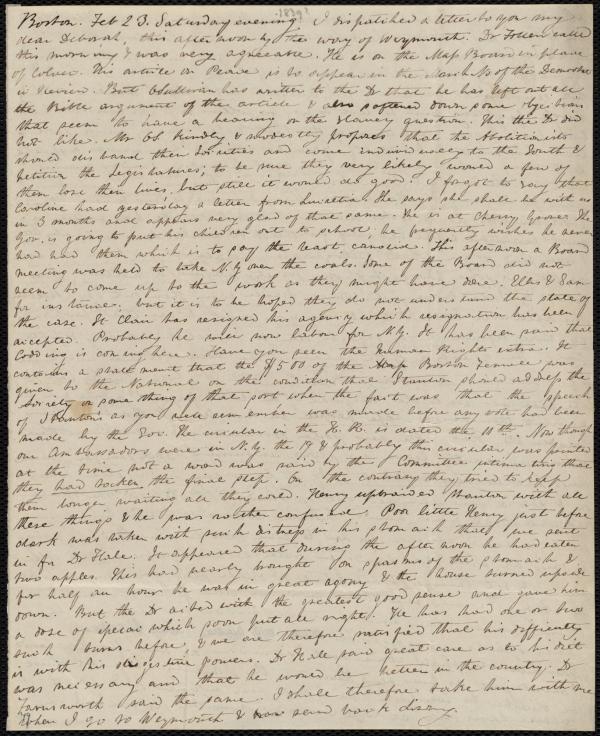 Boston. Feb 23. Saturday evening. 1839? I dispatched a letter to you my
dear Deborah, this afternoon by the way of Weymouth. Dr Follen called
this morning & was very agreeable. He is on the Mass Board in place
of Colver. His article on Peace is to appear in the March No of the Democratic
Review. But O'Sullivan has written to the Dr that he has left out all
the Bible argument of the article & also softened down some objections
that seem to have a bearing on the slavery question. This the Dr did
not like. Mr O'S kindly & modestly proposes that the Abolitionists
should disband their Societies and come individually to the South &
petition the Legislatures; to be sure they very likely would a few of
them lose their lives, but still it would do good. I forgot to say that
Caroline had yesterday a letter from Lucretia. She says she shall be with us
in 3 months and appears very glad of that same. She is at Cherry Grove. The
Gov. is going to put his children out to school, he frequently wishes he never
had had them which is to say the least, candid. This afternoon a Board
meeting was held to take N.Y. over the coals. Some of the Board did not
seem to come up to the work as they might have done. Ellis & Sam
for instance, but it is to be hoped they do not understand the state of
the case. St Clair has resigned his agency which resignation has been
accepted. Probably he will now labour for N.Y. It has been said that
Codding is coming here. Have you seen the Human Rights extra. It
contains a statement that the $500 of the Boston Female was
given to the National on the condition that Stanton should address the
Society or something of that sort when the fact was that the speech
of Stanton's as you will remember was made before any vote had been
made by the Soc. The circular in the H. R. is dated the 11th. Now though
our Ambassadors were in N.Y. the 17 & probably this circular was printed
at the time not a word was said by the Committee intimating that
they had taken the final step. On the contrary they tried to keep
them longer waiting all they could. Henry upbraided Stanton with all
these things & he was rather confused. Poor little Henry just before
dark was taken with such distress in his stomach that we sent
in for Dr Hale. It appeared that during the afternoon he had eaten
two apples. This had nearly brought on spasms of the stomach &
for half an hour he was in great agony & the house turned upside
down. But the Dr acted with the greatest good sense and gave him
a dose of ipecac which soon put all right. He has had one or two
such turns before, & we are therefore satisfied that his difficulty
is with his digestive powers. Dr Hale said great care as to his diet
was necessary and that he would be better in the country. Dr
Farnsworth said the same. I shall therefore take him with me
when I go to Weymouth & send back Lizzy.